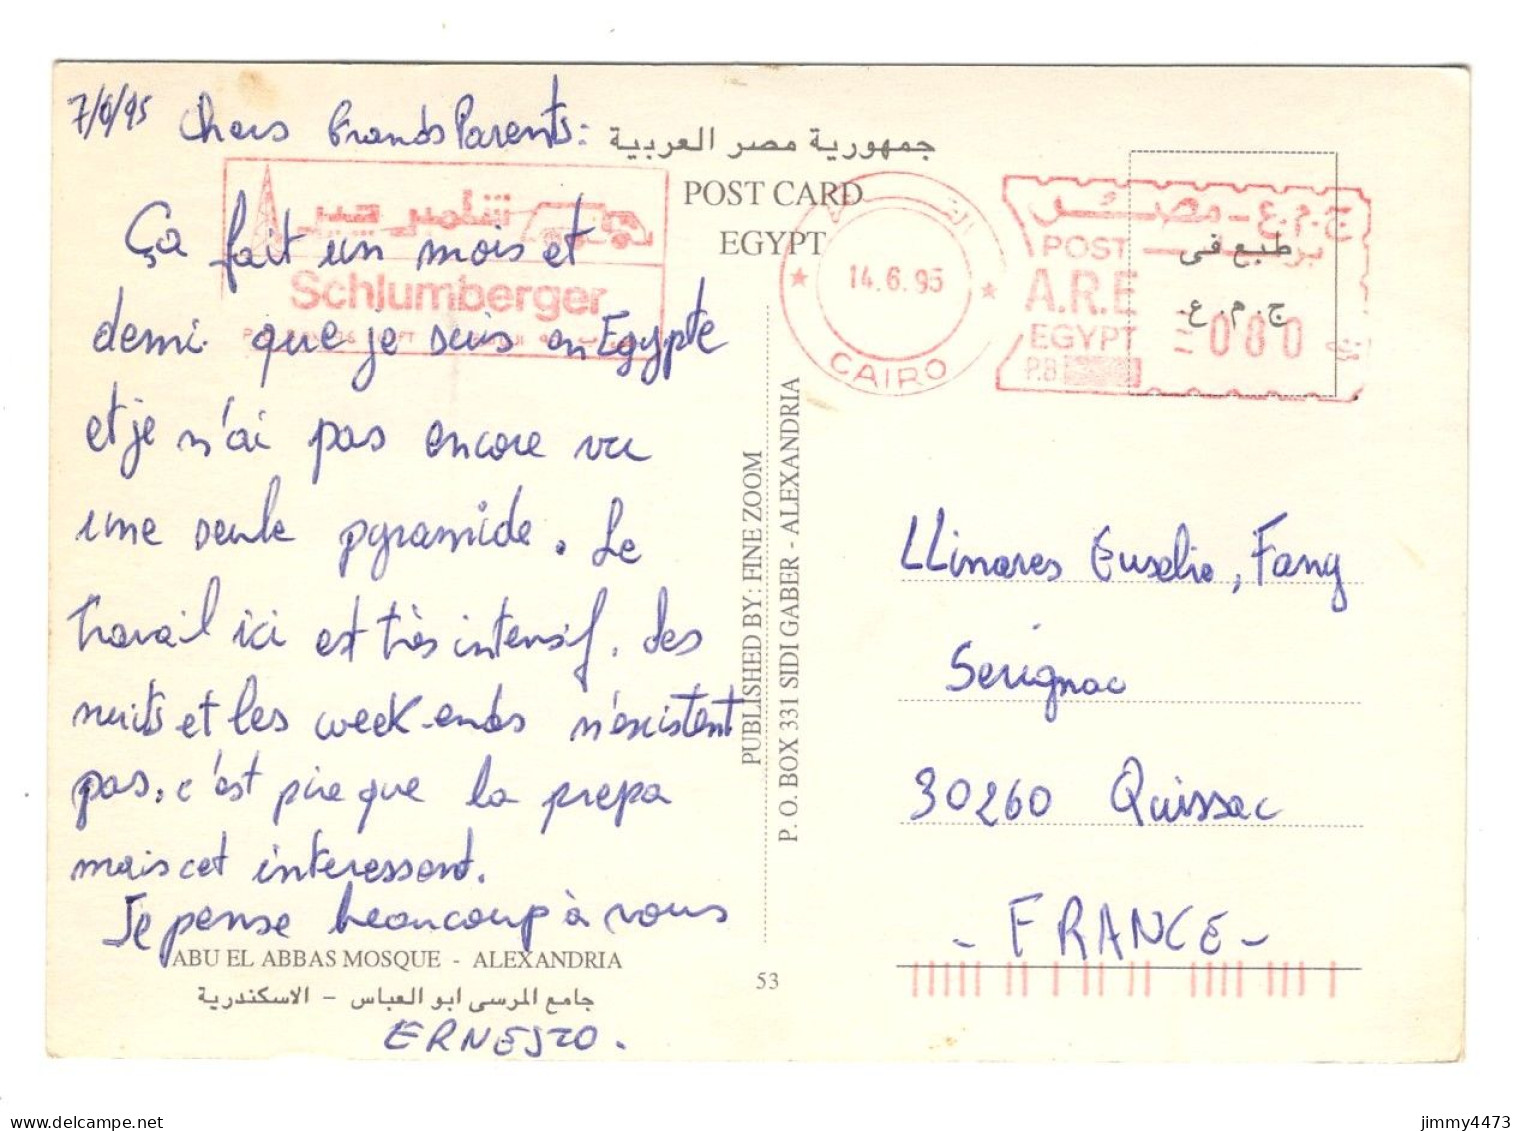 7/6/95 Chers Grands Parents:
Ça fait un mois et
demi que je suis en Egypte
et je n'ai pas encore vu
une seule pyramide. Le
travail ici est très intensif. Les
nuits et les week-ends n'existent
pas. c'est pire que la prepa
mais cet interessant.
Je pense beaucoup à vous
ABU EL ABBAS MOSQUE - ALEXANDRIA
جامع المرسى ابو العباس - الاسكندرية
ERNESTO.
جمهورية مصر العربية
POST CARD
EGYPT
شلمبرجير
Schlumberger
14.6.95
CAIRO
ج.م.ع - مصر
POST
A.R.E
EGYPT
P.B
080
طبع فى
ج.م.ع.
PUBLISHED BY: FINE ZOOM
P. O. BOX 331 SIDI GABER - ALEXANDRIA
53
LLinares Eusebio, Fany
Serignac
30260 Quissac
- FRANCE -
jimmy4473